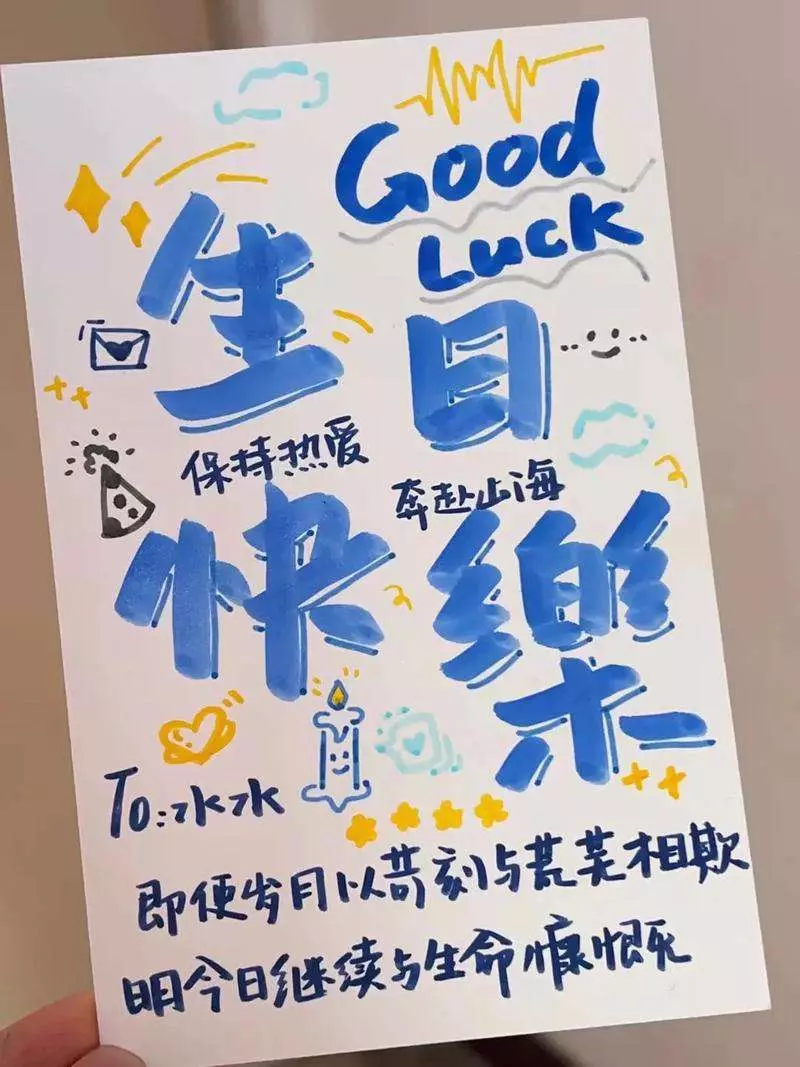 Good
Luck
生日
保持热爱
奔赴山海
快樂
To:水水
即便岁月以苛刻与荒芜相欺
明今日继续与生命慷慨